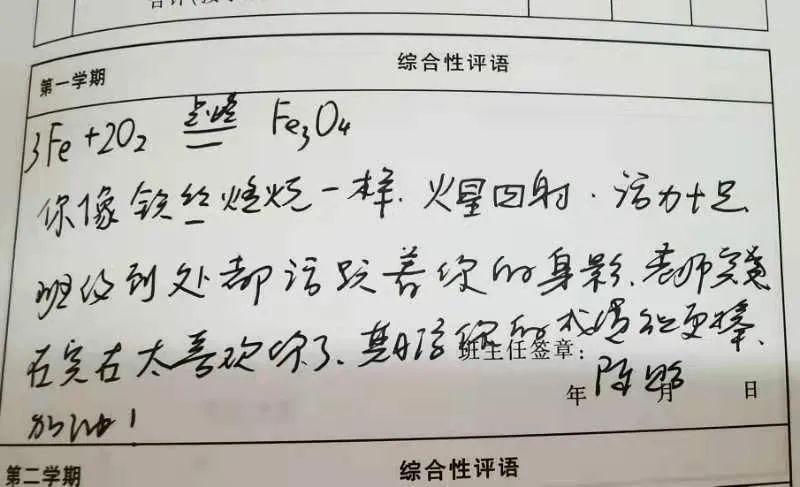 第一学期
综合性评语
3Fe+2O₂ 点燃 Fe₃O₄
你像铁丝燃烧一样.火星四射.活力十足
班级到处都活跃着你的身影.老师实
在实在太喜欢你了、期待你的成绩能更棒、
班主任签章:
陈
年 月 日
加油!
第二学期
综合性评语